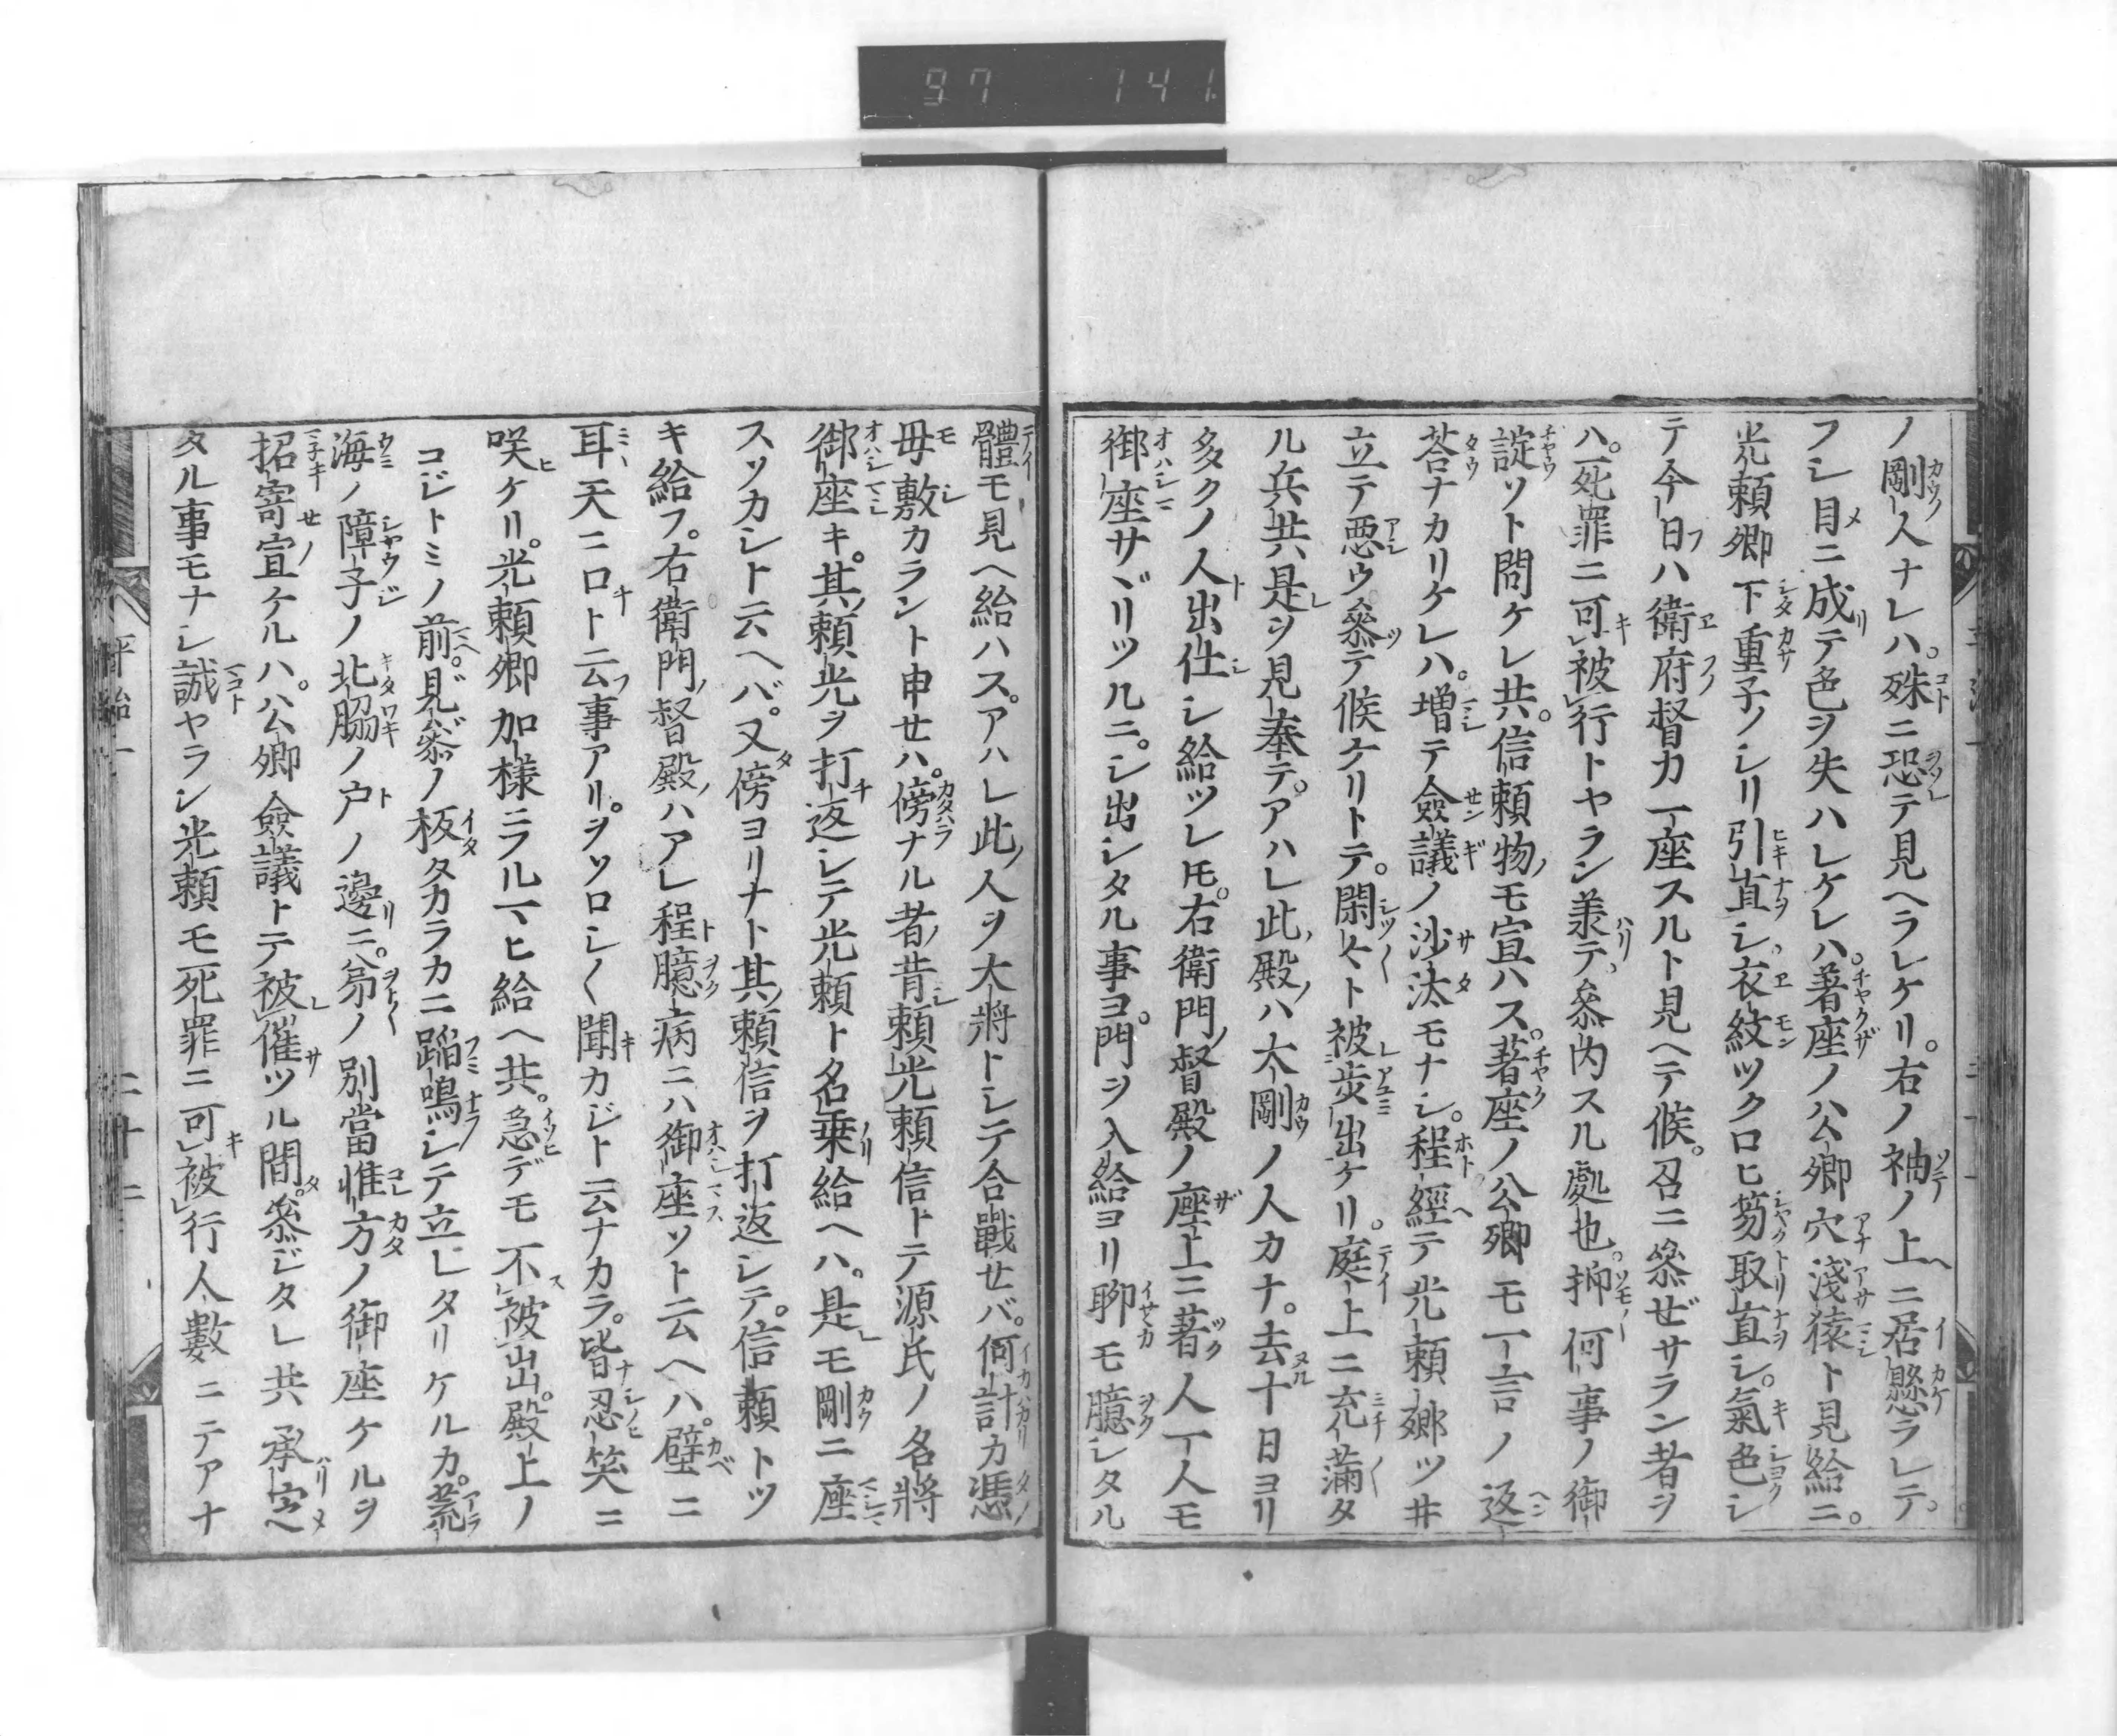 97 141
ノ剛人ナレハ。殊ニ恐テ見ヘラレケリ。右ノ袖ノ上ニ居懸ラレテ。
フシ目ニ成テ色ヲ失ハレケレハ。著座ノ公卿穴淺猿ト見給ニ。
光頼卿下重子ノシリ引直シ衣紋ツクロヒ笏取直シ。氣色シ
テ今日ハ衛府督カ一座スルト見ヘテ候。召ニ參ゼサラン者ヲ
ハ。死罪ニ可被行トヤラン羕テ參内スル處也。抑何事ノ御
諚ソト問ケレ共。信頼物モ宣ハス。著座ノ公卿モ一言ノ返
荅ナカリケレハ。増テ僉議ノ沙汰モナシ。程經テ光頼卿ツ井
立テ悪ウ參テ候ケリトテ。閑々ト被歩出ケリ。庭上ニ充滿タ
ル兵共是ヲ見奉テ。アハレ此殿ハ大剛ノ人カナ。去十日ヨリ
多クノ人出仕シ給ツレ𪜈。右衛門督殿ノ座上ニ著人一人モ
御座サヾリツルニ。シ出シタル事ヨ。門ヲ入給ヨリ聊モ臆シタル
體モ見ヘ給ハス。アハレ此人ヲ大將トシテ合戰セバ。何計カ憑
毋敷カラント申セハ。傍ナル者昔頼光頼信トテ源氏ノ名將
御座キ。其頼光ヲ打返シテ光頼ト名乗給ヘハ。是モ剛ニ座
スソカシト云ヘバ。又傍ヨリナト其頼信ヲ打返シテ。信頼トツ
キ給フ。右衛門督殿ハアレ程臆病ニハ御座ソト云ヘハ。壁ニ
耳天ニ口ト云事アリ。ヲソロシ〱聞カジト云ナカラ。皆忍笑ニ
咲ケリ。光頼卿加様ニフルマヒ給ヘ共。急デモ不被出。殿上ノ
コジトミノ前。見參ノ板タカラカニ蹈鳴シテ立レタリケルカ。荒
海ノ障子ノ北脇ノ戸ノ邊ニ。弟ノ別當惟方ノ御座ケルヲ
招寄宣ケルハ。公卿僉議トテ被催ツル間。參ジタレ共承定
タル事モナシ誠ヤラン光頼モ死罪ニ可被行人數ニテアナ
平治一 二十二